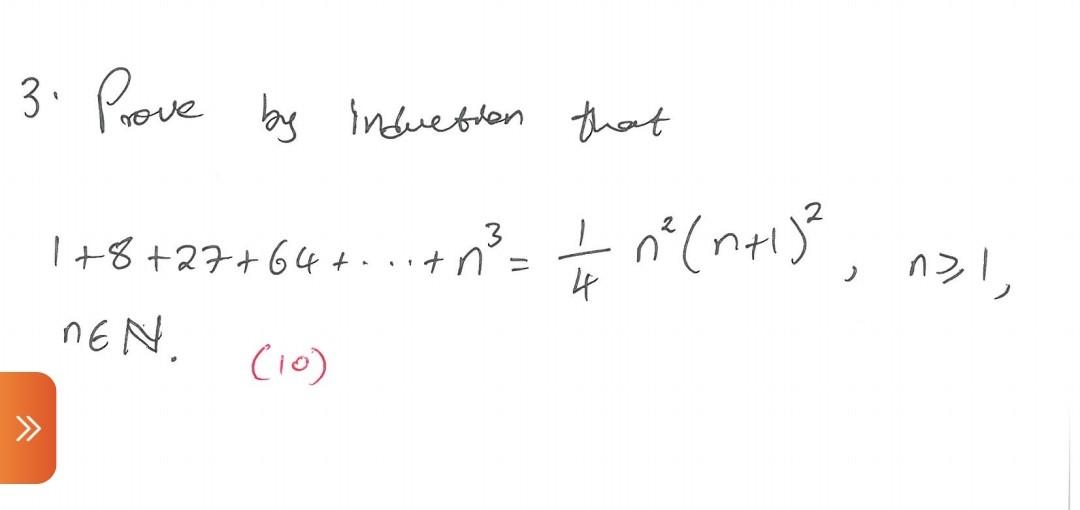 3. Prove by induction that
1+8+27+64+....+n³ = 1/4 n²(n+1)², n⩾1,
n∈ℕ. (10)